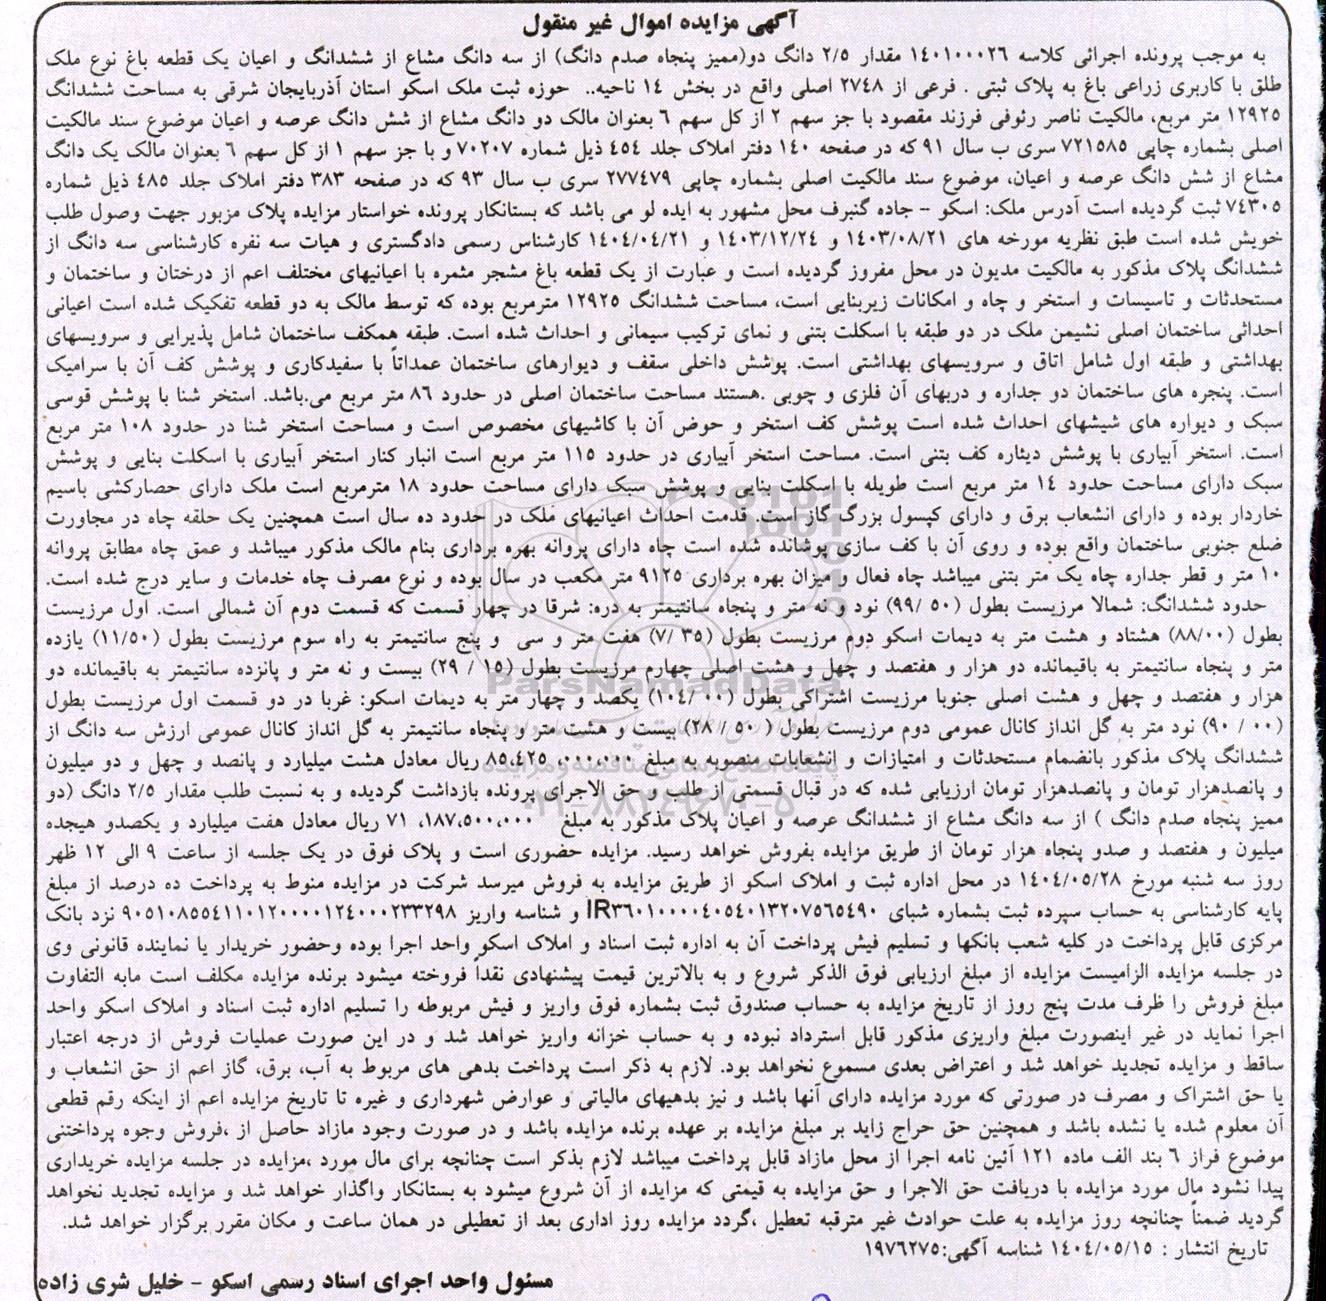 آگهی مزایده اموال غیر منقول
به موجب پرونده اجرائی کلاسه ۱۴۰۱۰۰۰۲۶ مقدار ۲/۵ دانگ دو(ممیز پنجاه صدم دانگ) از سه دانگ مشاع از ششدانگ و اعیان یک قطعه باغ نوع ملک
طلق با کاربری زراعی باغ به پلاک ثبتی . فرعی از ۲۷۴۸ اصلی واقع در بخش ۱۴ ناحیه.. حوزه ثبت ملک اسکو استان آذربایجان شرقی به مساحت ششدانگ
۱۲۹۲۵ متر مربع، مالکیت ناصر رئوفی فرزند مقصود با جز سهم ۲ از کل سهم ۶ بعنوان مالک دو دانگ مشاع از شش دانگ عرصه و اعیان موضوع سند مالکیت
اصلی بشماره چاپی ۷۲۱۵۸۵ سری ب سال ۹۱ که در صفحه ۱۴۰ دفتر املاک جلد ۴۵۴ ذیل شماره ۷۰۲۰۷ و با جز سهم ۱ از کل سهم ۶ بعنوان مالک یک دانگ
مشاع از شش دانگ عرصه و اعیان، موضوع سند مالکیت اصلی بشماره چاپی ۲۷۷۴۷۹ سری ب سال ۹۳ که در صفحه ۳۸۳ دفتر املاک جلد ۴۸۵ ذیل شماره
۷۴۳۰۵ ثبت گردیده است آدرس ملک: اسکو - جاده گنبرف محل مشهور به ایده لو می باشد که بستانکار پرونده خواستار مزایده پلاک مزبور جهت وصول طلب
خویش شده است طبق نظریه مورخه های ۱۴۰۳/۰۸/۲۱ و ۱۴۰۳/۱۲/۲۴ و ۱۴۰۴/۰۴/۲۱ کارشناس رسمی دادگستری و هیات سه نفره کارشناسی سه دانگ از
ششدانگ پلاک مذکور به مالکیت مدیون در محل مفروز گردیده است و عبارت از یک قطعه باغ مشجر مثمره با اعیانیهای مختلف اعم از درختان و ساختمان و
مستحدثات و تاسیسات و استخر و چاه و امکانات زیربنایی است، مساحت ششدانگ ۱۲۹۲۵ مترمربع بوده که توسط مالک به دو قطعه تفکیک شده است اعیانی
احداثی ساختمان اصلی نشیمن ملک در دو طبقه با اسکلت بتنی و نمای ترکیب سیمانی و احداث شده است. طبقه همکف ساختمان شامل پذیرایی و سرویسهای
بهداشتی و طبقه اول شامل اتاق و سرویسهای بهداشتی است. پوشش داخلی سقف و دیوارهای ساختمان عمداتاً با سفیدکاری و پوشش کف آن با سرامیک
است. پنجره های ساختمان دو جداره و دربهای آن فلزی و چوبی .هستند مساحت ساختمان اصلی در حدود ۸۶ متر مربع می.باشد. استخر شنا با پوشش قوسی
سبک و دیواره های شیشهای احداث شده است پوشش کف استخر و حوض آن با کاشیهای مخصوص است و مساحت استخر شنا در حدود ۱۰۸ متر مربع
است. استخر آبیاری با پوشش دیتاره کف بتنی است. مساحت استخر آبیاری در حدود ۱۱۵ متر مربع است انبار کنار استخر آبیاری با اسکلت بنایی و پوشش
سبک دارای مساحت حدود ۱۴ متر مربع است طویله با اسکلت بنایی و پوشش سبک دارای مساحت حدود ۱۸ مترمربع است ملک دارای حصارکشی باسیم
خاردار بوده و دارای انشعاب برق و دارای کپسول بزرگ گاز است. قدمت احداث اعیانیهای ملک در حدود ده سال است همچنین یک حلقه چاه در مجاورت
ضلع جنوبی ساختمان واقع بوده و روی آن با کف سازی پوشانده شده است چاه دارای پروانه بهره برداری بنام مالک مذکور میباشد و عمق چاه مطابق پروانه
۱۰ متر و قطر جداره چاه یک متر بتنی میباشد چاه فعال و میزان بهره برداری ۹۱۲۵ متر مکعب در سال بوده و نوع مصرف چاه خدمات و سایر درج شده است.
حدود ششدانگ: شمالا مرزیست بطول (۵۰ /۹۹) نود و نه متر و پنجاه سانتیمتر به دره: شرقا در چهار قسمت که قسمت دوم آن شمالی است. اول مرزیست
بطول (۸۸/۰۰) هشتاد و هشت متر به دیمات اسکو دوم مرزیست بطول (۳۵ /۷) هفت متر و سی و پنج سانتیمتر به راه سوم مرزیست بطول (۱۱/۵۰) یازده
متر و پنجاه سانتیمتر به باقیمانده دو هزار و هفتصد و چهل و هشت اصلی چهارم مرزیست بطول (۱۵ / ۲۹) بیست و نه متر و پانزده سانتیمتر به باقیمانده دو
هزار و هفتصد و چهل و هشت اصلی جنوبا مرزیست اشتراکی بطول (۰۰ /۱۰۴) یکصد و چهار متر به دیمات اسکو: غربا در دو قسمت اول مرزیست بطول
(۰۰ / ۹۰) نود متر به گل انداز کانال عمومی دوم مرزیست بطول ( ۵۰ / ۲۸) بیست و هشت متر و پنجاه سانتیمتر به گل انداز کانال عمومی ارزش سه دانگ از
ششدانگ پلاک مذکور بانضمام مستحدثات و امتیازات و انشعابات منصوبه به مبلغ ۸۵،۴۲۵ ،۰۰۰،۰۰۰ ریال معادل هشت میلیارد و پانصد و چهل و دو میلیون
و پانصدهزار تومان و پانصدهزار تومان ارزیابی شده که در قبال قسمتی از طلب و حق الاجرای پرونده بازداشت گردیده و به نسبت طلب مقدار ۲/۵ دانگ (دو
ممیز پنجاه صدم دانگ ) از سه دانگ مشاع از ششدانگ عرصه و اعیان پلاک مذکور به مبلغ ۱۸۷،۵۰۰،۰۰۰، ۷۱ ریال معادل هفت میلیارد و یکصدو هیجده
میلیون و هفتصد و صدو پنجاه هزار تومان از طریق مزایده بفروش خواهد رسید. مزایده حضوری است و پلاک فوق در یک جلسه از ساعت ۹ الی ۱۲ ظهر
روز سه شنبه مورخ ۱۴۰۴/۰۵/۲۸ در محل اداره ثبت و املاک اسکو از طریق مزایده به فروش میرسد شرکت در مزایده منوط به پرداخت ده درصد از مبلغ
پایه کارشناسی به حساب سپرده ثبت بشماره شبای IR۳۶۰۱۰۰۰۰۴۰۵۴۰۱۳۲۰۷۵۶۵۴۹۰ و شناسه واریز ۹۰۵۱۰۸۵۵۴۱۱۰۱۲۰۰۰۰۱۲۴۰۰۰۲۳۳۲۹۸ نزد بانک
مرکزی قابل پرداخت در کلیه شعب بانکها و تسلیم فیش پرداخت آن به اداره ثبت اسناد و املاک اسکو واحد اجرا بوده وحضور خریدار یا نماینده قانونی وی
در جلسه مزایده الزامیست مزایده از مبلغ ارزیابی فوق الذکر شروع و به بالاترین قیمت پیشنهادی نقداً فروخته میشود برنده مزایده مکلف است مابه التفاوت
مبلغ فروش را ظرف مدت پنج روز از تاریخ مزایده به حساب صندوق ثبت بشماره فوق واریز و فیش مربوطه را تسلیم اداره ثبت اسناد و املاک اسکو واحد
اجرا نماید در غیر اینصورت مبلغ واریزی مذکور قابل استرداد نبوده و به حساب خزانه واریز خواهد شد و در این صورت عملیات فروش از درجه اعتبار
ساقط و مزایده تجدید خواهد شد و اعتراض بعدی مسموع نخواهد بود. لازم به ذکر است پرداخت بدهی های مربوط به آب، برق، گاز اعم از حق انشعاب و
یا حق اشتراک و مصرف در صورتی که مورد مزایده دارای آنها باشد و نیز بدهیهای مالیاتی و عوارض شهرداری و غیره تا تاریخ مزایده اعم از اینکه رقم قطعی
آن معلوم شده یا نشده باشد و همچنین حق حراج زاید بر مبلغ مزایده بر عهده برنده مزایده باشد و در صورت وجود مازاد حاصل از ،فروش وجوه پرداختنی
موضوع فراز ۶ بند الف ماده ۱۲۱ آئین نامه اجرا از محل مازاد قابل پرداخت میباشد لازم بذکر است چنانچه برای مال مورد ،مزایده در جلسه مزایده خریداری
پیدا نشود مال مورد مزایده با دریافت حق الاجرا و حق مزایده به قیمتی که مزایده از آن شروع میشود به بستانکار واگذار خواهد شد و مزایده تجدید نخواهد
گردید ضمناً چنانچه روز مزایده به علت حوادث غیر مترقبه تعطیل ،گردد مزایده روز اداری بعد از تعطیلی در همان ساعت و مکان مقرر برگزار خواهد شد.
تاریخ انتشار : ۱۴۰۴/۰۵/۱۵ شناسه آگهی:۱۹۷۶۲۷۵
مسئول واحد اجرای اسناد رسمی اسکو - خلیل شری زاده
ParsNamadData
پایگاه اطلاع رسانی مناقصه و مزایده
۰۲۱-۸۸۳۴۹۶۷۰-۵